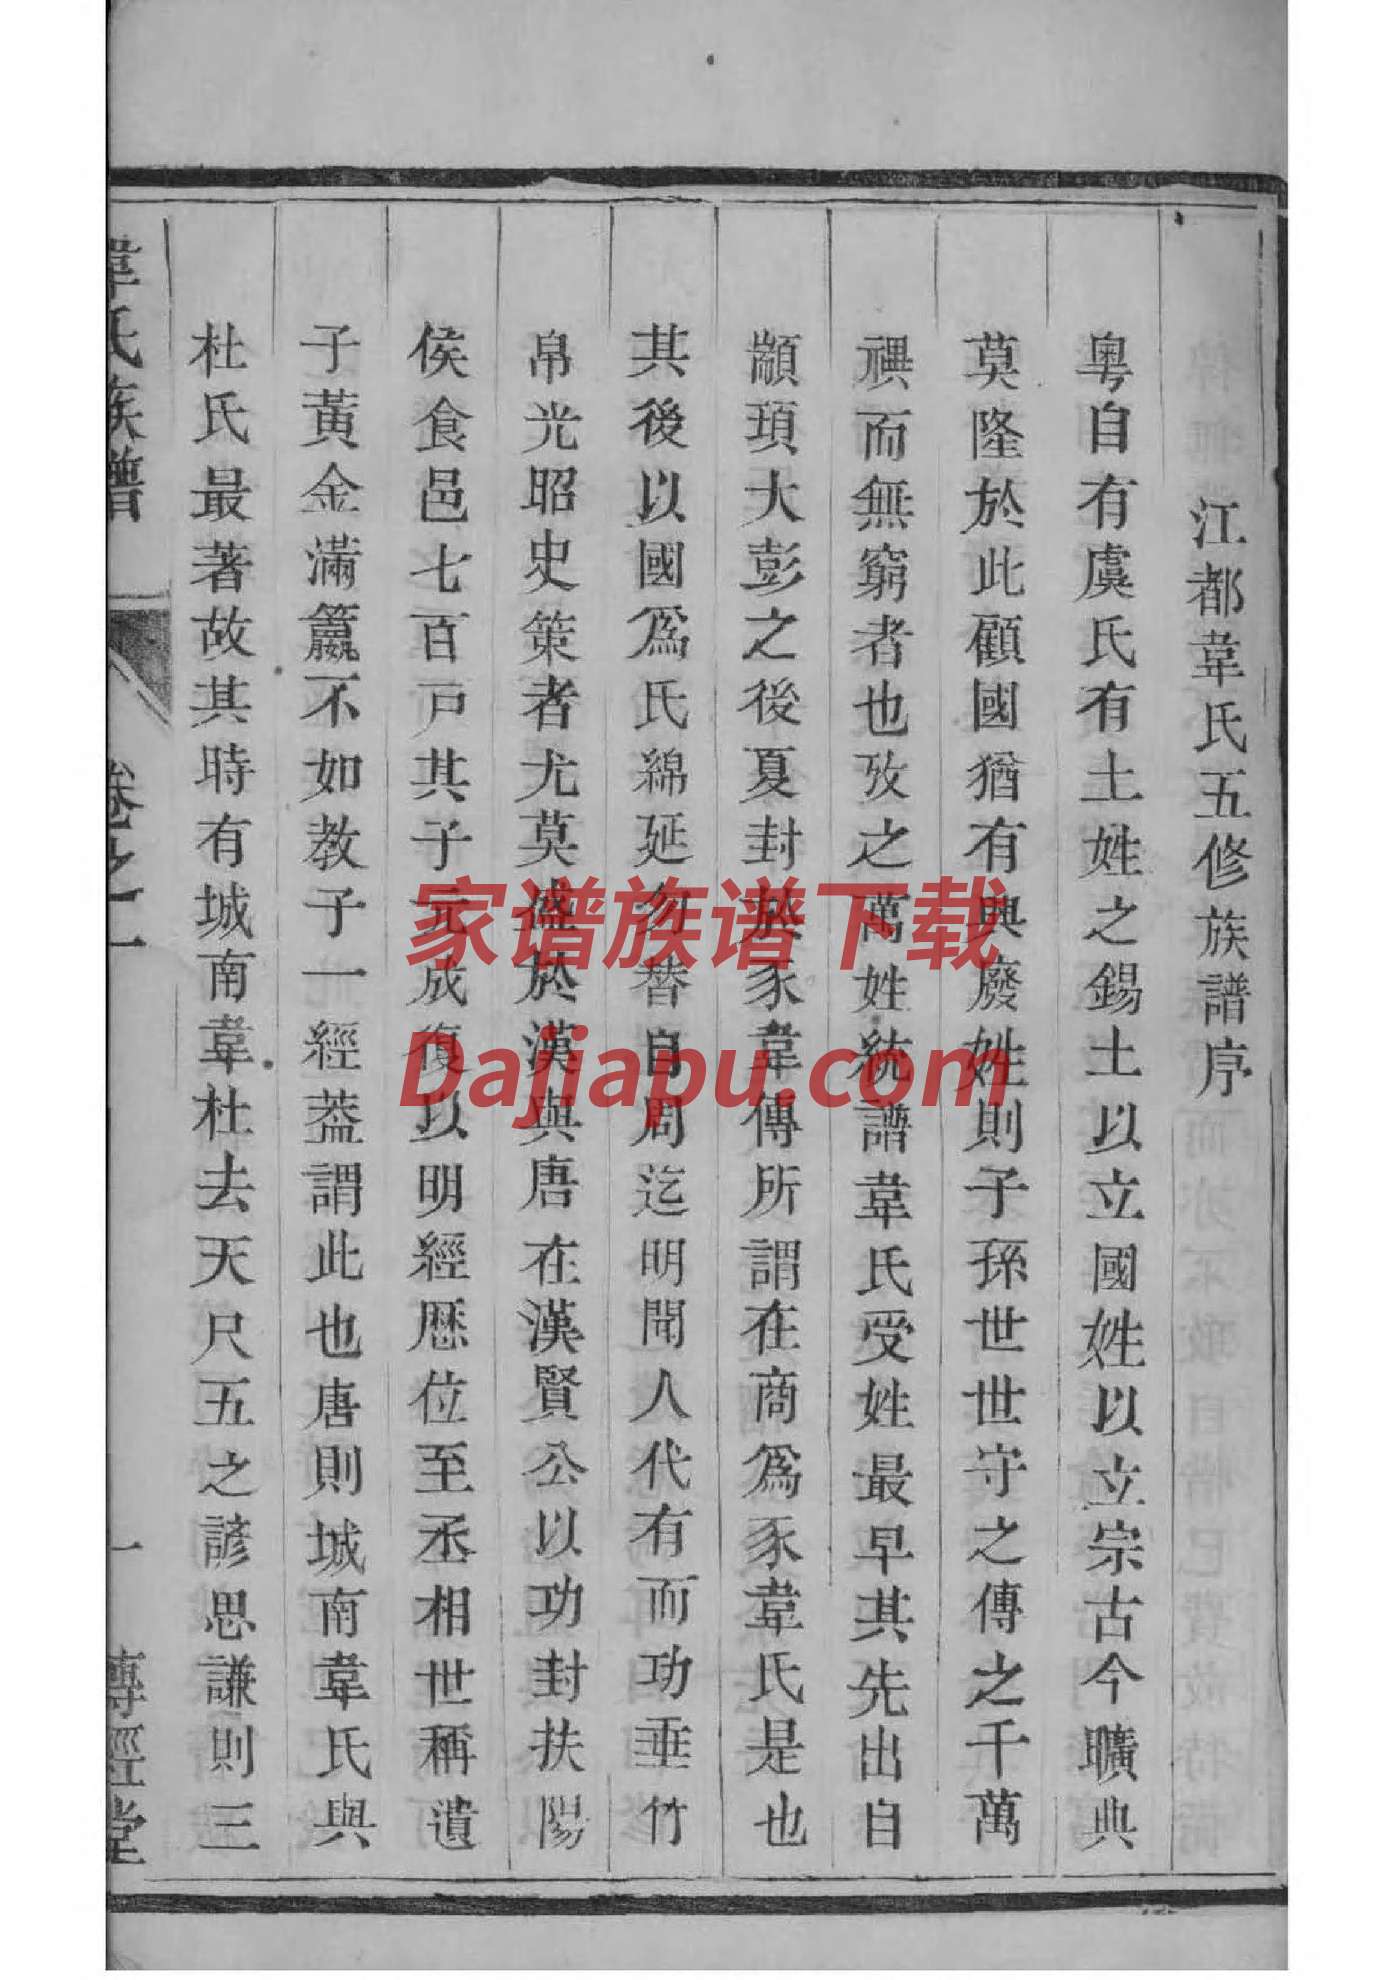 江都韋氏五修族譜序
粵自有虞氏有土姓之錫土以立國姓以立宗古今曠典
莫隆於此顧國猶有興廢姓則子孫世世守之傳之千萬
禩而無窮者也攷之萬姓統譜韋氏受姓最早其先出自
顓頊大彭之後夏封於豕韋傳所謂在商為豕韋氏是也
其後以國為氏綿延勿替自周迄明聞人代有而功垂竹
帛光昭史策者尤莫盛於漢與唐在漢賢公以功封扶陽
侯食邑七百戸其子元成復以明經歷位至丞相世稱遺
子黃金滿籯不如教子一經葢謂此也唐則城南韋氏與
杜氏最著故其時有城南韋杜去天尺五之諺思謙則三
韋氏族譜 卷之一 一 傳經堂
家谱族谱下载
Dajiapu.com